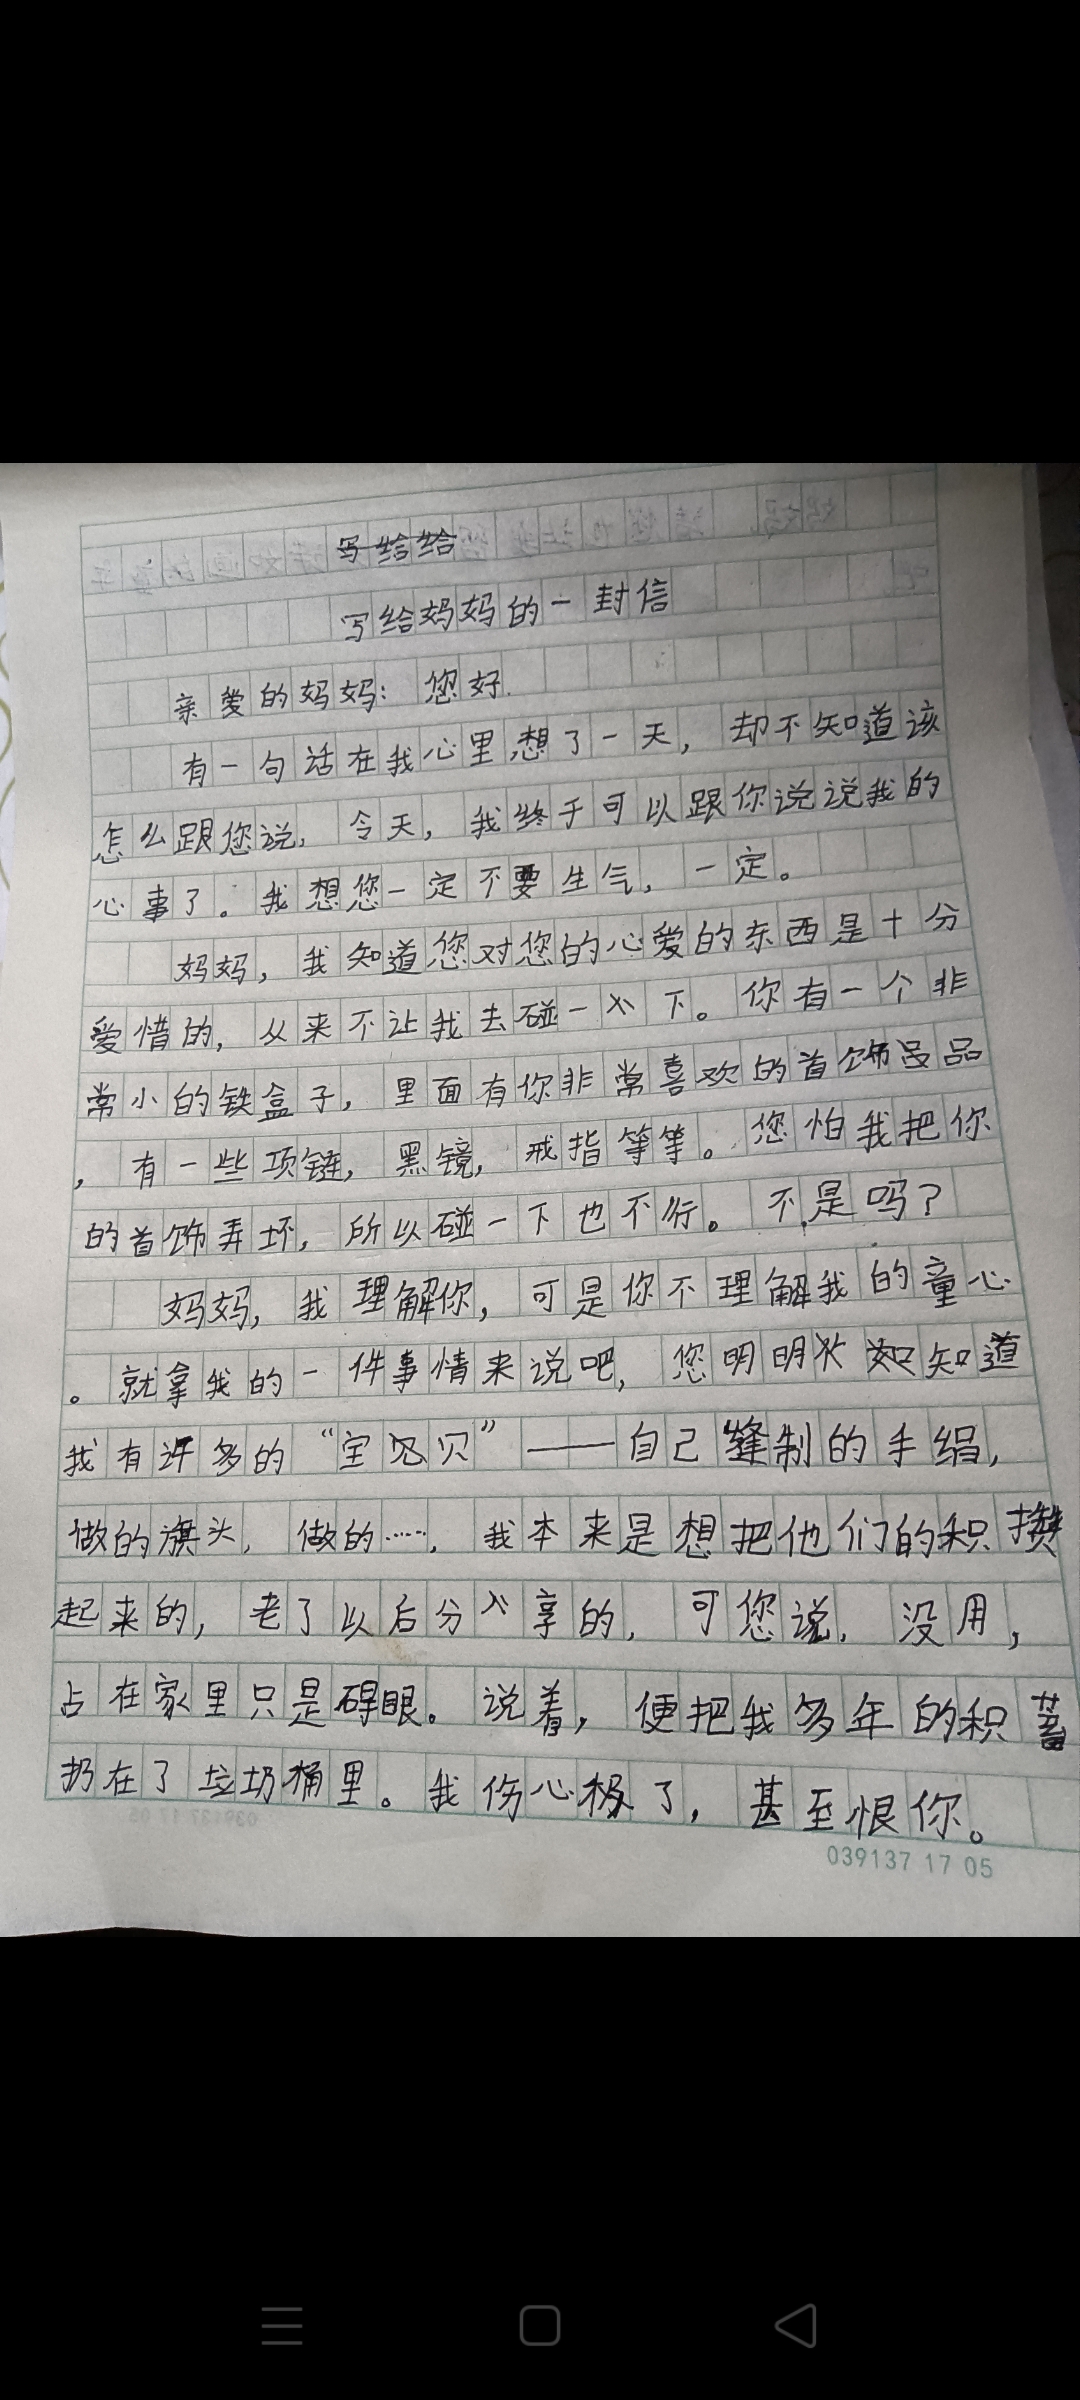 写给给
写给妈妈的一封信
亲爱的妈妈：您好.
有一句话在我心里想了一天，却不知道该
怎么跟您说，今天，我终于可以跟你说说我的
心事了。我想您一定不要生气，一定。
妈妈，我知道您对您的心爱的东西是十分
爱惜的，从来不让我去碰一下。你有一个非
常小的铁盒子，里面有你非常喜欢的首饰品
，有一些项链，黑镜，戒指等等。您怕我把你
的首饰弄坏，所以碰一下也不行。不是吗？
妈妈，我理解你，可是你不理解我的童心
。就拿我的一件事情来说吧，您明明知道
我有许多的“宝贝”——自己缝制的手绢，
做的旗头，做的……，我本来是想把他们的积攒
起来的，老了以后分享的，可您说，没用，
占在家里只是碍眼。说着，便把我多年的积蓄
扔在了垃圾桶里。我伤心极了，甚至恨你。
039137 17 05